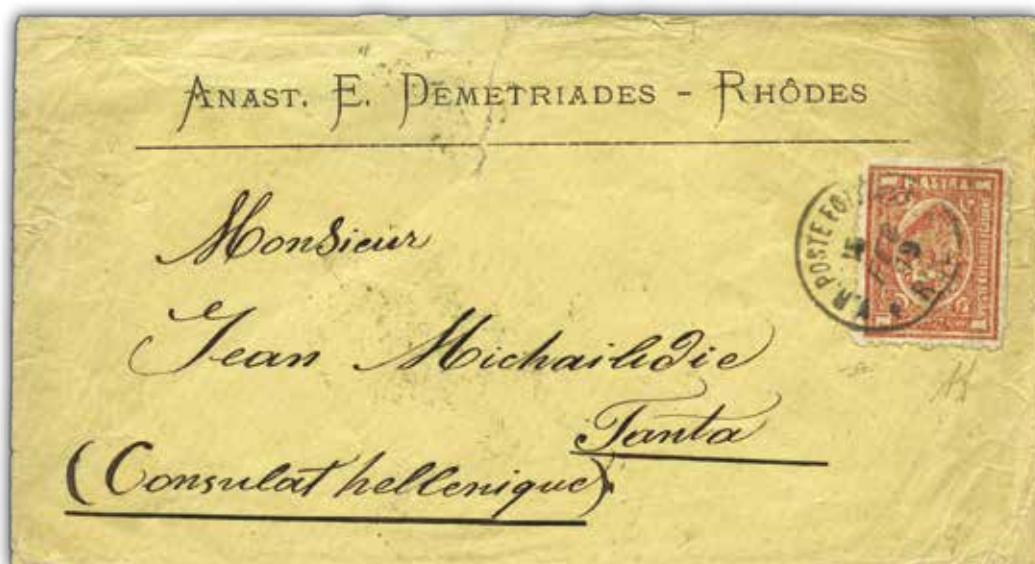 ANAST. E. DÉMETRIADES - RHÔDES
Monsieur
Jean Michailidie
Tanta
(Consulat hellenique)
V.R. POSTE
15
79
PIASTRA